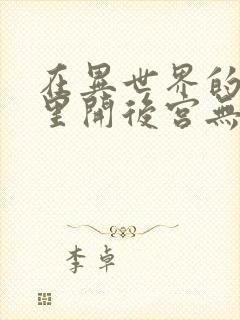 在異世界的
望開後宮無
李卓